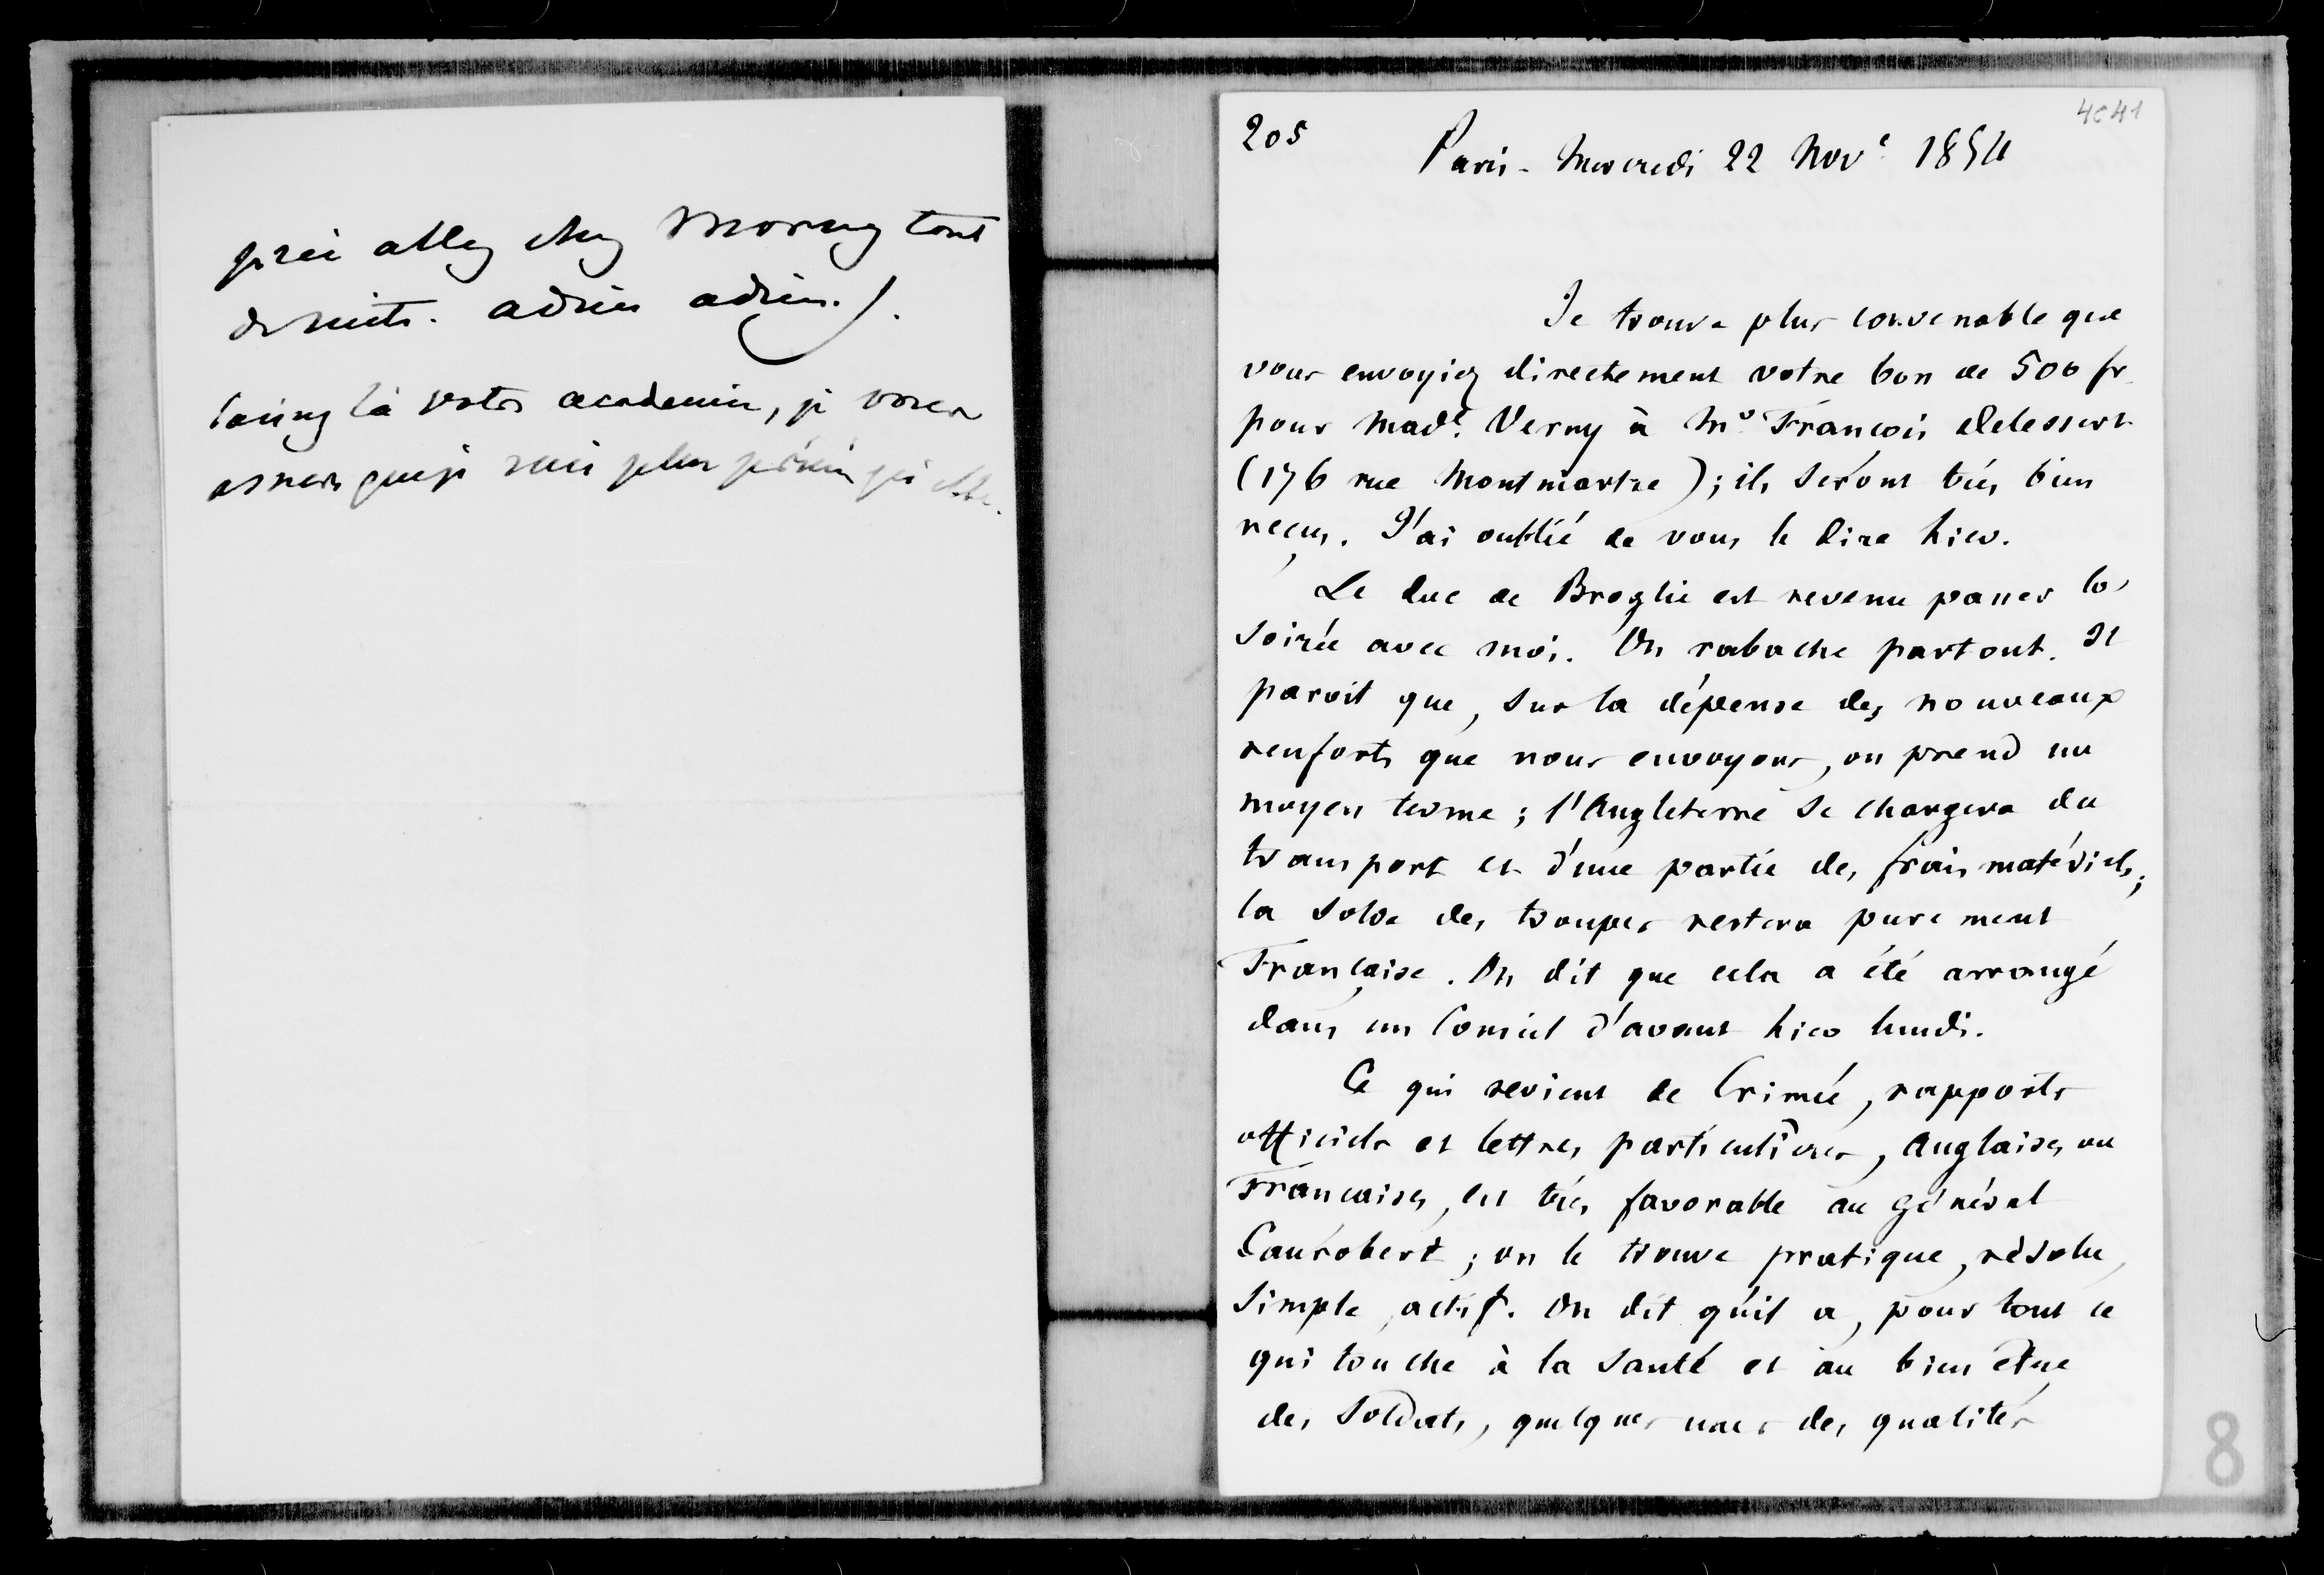 prie allez chez Morny tout
de suite. adieu adieu.
laissez là votre académie, je vous
assure que je suis plus
4041
205
Paris - Mercredi 22 Nov.e 1854
Je trouve plus convenable que
vous envoyiez directement votre bon de 500 fr
pour Made. Verny à Mr François Delessert
(176 rue Montmartre); ils seront très bien
reçus. J'ai oublié de vous le dire hier.
Le duc de Broglie est revenu passer la
soirée avec moi. On rabache partout. Il
paroit que, sur la dépense des nouveaux
renforts que nous envoyons, on prend un
moyen terme ; l'Angleterre se chargera du
transport et d'une partie des frais matériels ;
la solde des troupes restera purement
Française. On dit que cela a été arrangé
dans un Conseil d'avant hier lundi.
Ce qui revient de Crimée, rapports
officiels et lettres particulières, Anglaises ou
Françaises, est très favorable au général
Canrobert ; on le trouve pratique, résolu,
simple, actif. On dit qu'il a, pour tout ce
qui touche à la santé et au bien être
des soldats, quelques unes des qualités
8